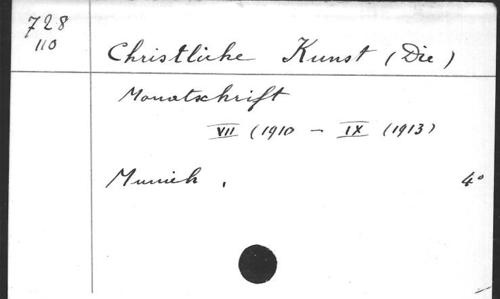 728
110
Christliche Kunst (Die)
Monatschrift
VII (1910 – IX (1913)
Munich, 4°